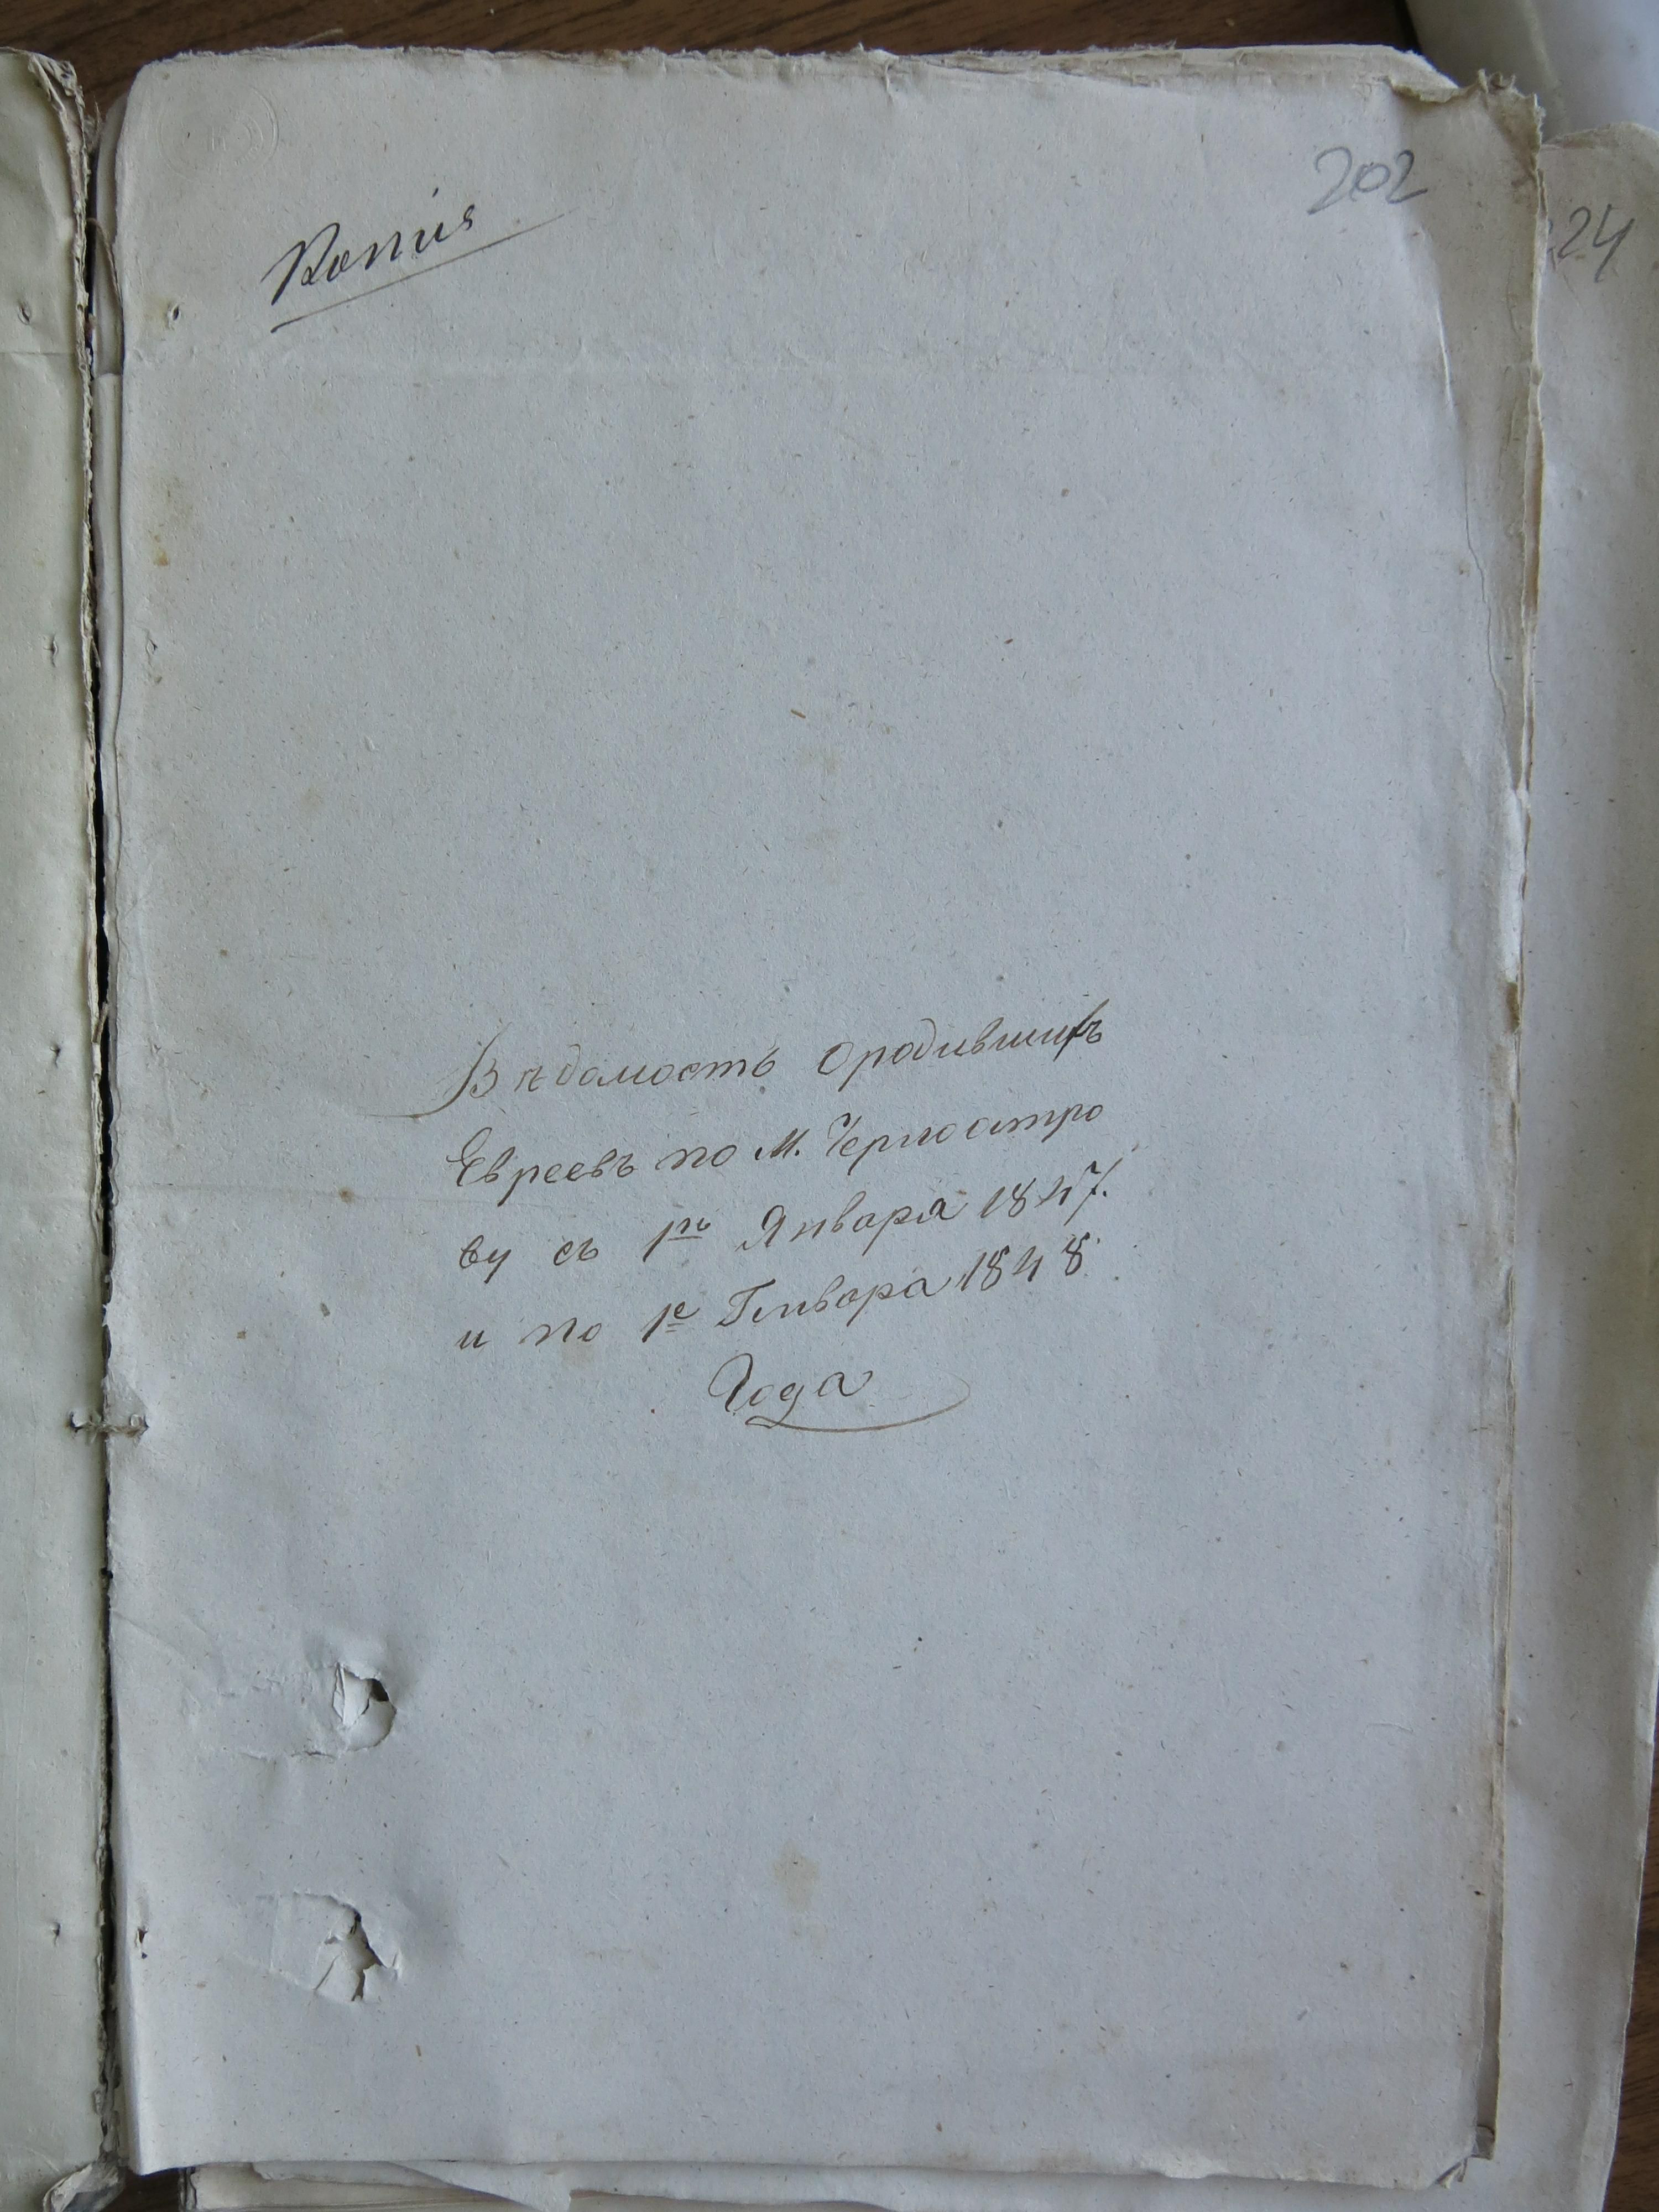 202
224
Копия
Вѣдомость Ородившихъ
Евреевъ по М. Черноостро
ву съ 1го Января 1847.
и по 1е Генвара 1848
Года